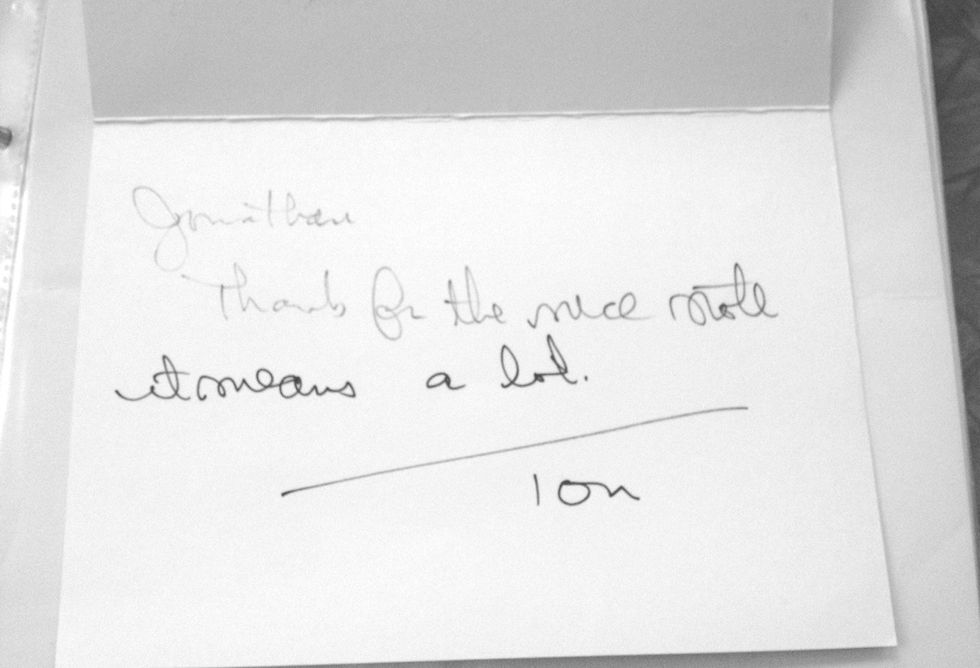 Jonathan
Thanks for the nice note
it means a lot.
Tom